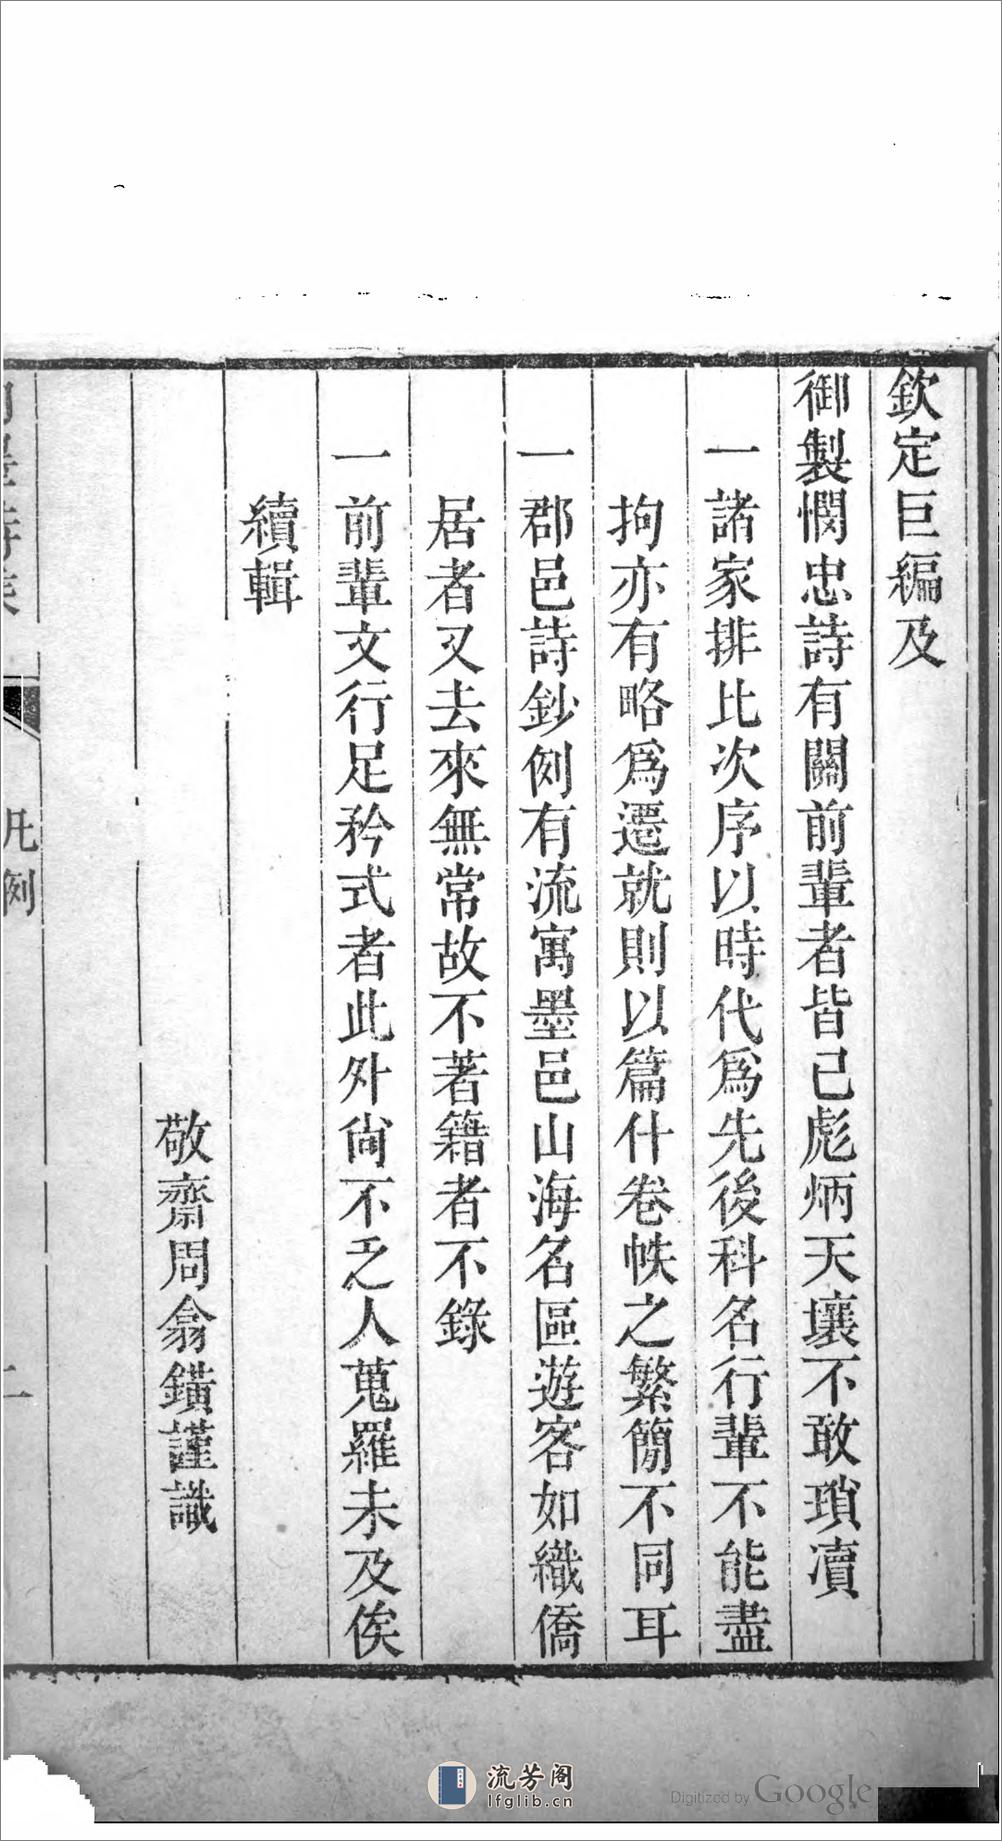 欽定巨編及
御製憫忠詩有關前輩者皆已彪炳天壤不敢瑣凟
一諸家排比次序以時代爲先後科名行輩不能盡
拘亦有略爲遷就則以篇什卷帙之繁簡不同耳
一郡邑詩鈔例有流寓墨邑山海名區遊客如織僑
居者又去來無常故不著籍者不錄
一前輩文行足矜式者此外尙不乏人蒐羅未及俟
續輯
敬齋周翕鐄謹識
凡例
二
流芳阁
lfglib.cn
Digitized by Google